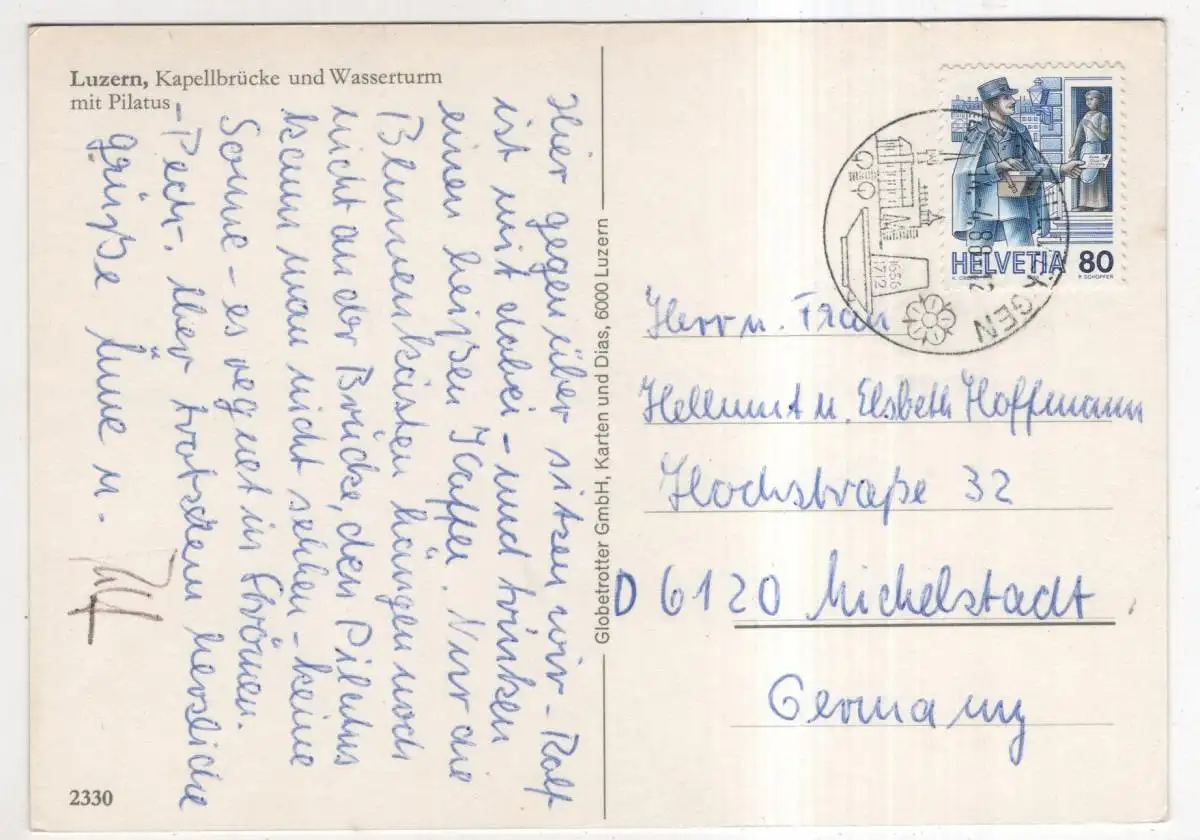 Luzern, Kapellbrücke und Wasserturm
mit Pilatus
Hier gegenüber sitzen wir - Rolf
ist mit dabei - und trinken
einen heißen Kaffee. Nur die
Blumenkästen hängen noch
nicht an der Brücke, den Pilatus
kann man nicht sehen - keine
Sonne - es regnet in Strömen.
- Pech. Aber trotzdem herzliche
grüße Änne u.
Rolf
2330
Globetrotter GmbH, Karten und Dias, 6000 Luzern
HELVETIA 80
P. SCHOPFER
1656
1712
GEN
Herr u. Frau
Hellmut u. Elsbeth Hoffmann
Hochstraße 32
D 6120 Michelstadt
Germany